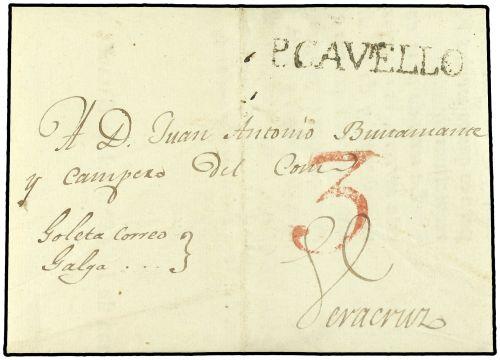 P.CAVELLO
A D. Juan Antonio
y Campero del Com
3
Goleta Correo
Galga ...
Veracruz